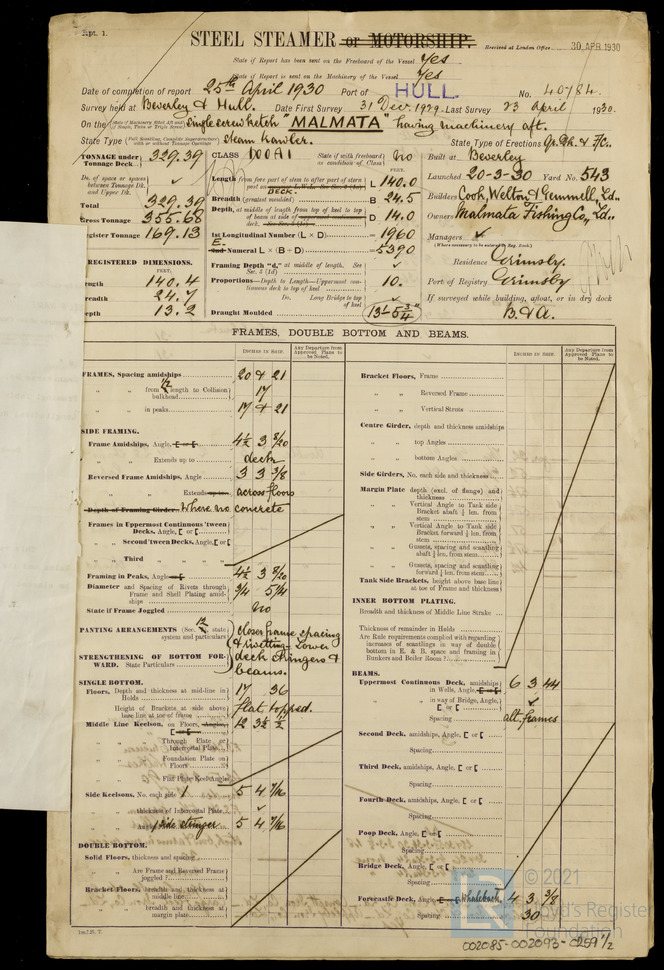 Rpt. 1.
STEEL STEAMER or MOTORSHIP.
Received at London Office 30 APR 1930
State if Report has been sent on the Freeboard of the Vessel Yes
State if Report is sent on the Machinery of the Vessel Yes
Date of completion of report 25th April 1930 Port of HULL. No. 40784
Survey held at Beverley & Hull. Date First Survey 31 Dec. 1929 Last Survey 23 April 1930.
On the single screw ketch "MALMATA" having machinery aft.
State Type Steam trawler. State Type of Erections Qr. Dk. & Fc.
TONNAGE under Tonnage Deck 329.39
Do. of space or spaces between Tonnage Dk. and Upper Dk. ✓
Total 329.39
Gross Tonnage 355.68
Register Tonnage 169.13
REGISTERED DIMENSIONS.
FEET.
Length 140.4
Breadth 24.7
Depth 13.2
CLASS 100A1 State if with freeboard as condition of Class No
FEET.
Length from fore part of stem to after part of stern post L 140.0
DECK.
Breadth (greatest moulded) B 24.5
Depth, at middle of length from top of keel to top of beam at side of D 14.0
1st Longitudinal Number (L × D) = 1960
2nd Numeral L × (B + D) = 5390
Framing Depth "d," at middle of length. See Sec. 3 (1d) ✓
Proportions—Depth to Length—Uppermost continuous deck to top of keel 10.
Do. Long Bridge to top of keel ✓
Draught Moulded 13'-5¾"
Built at Beverley
Launched 20-3-30 Yard No. 543
Builders Cook, Welton & Gemmell, Ld.
Owners Malmata Fishing Co., Ld.
Managers ✓
(Where necessary to be entered in Reg. Book.)
Residence Grimsby.
Port of Registry Grimsby
If surveyed while building, afloat, or in dry dock
B. & A.
FRAMES, DOUBLE BOTTOM AND BEAMS.
INCHES IN SHIP. Any Departure from Approved Plans to be Noted.
FRAMES, Spacing amidships 20 & 21
" " from ½ length to Collision bulkhead 17
" " in peaks 17 & 21
SIDE FRAMING.
Frame Amidships, Angle, [ or [ 4½ 3 8/20
" " Extends up to deck
Reversed Frame Amidships, Angle 3 3 3/8
" " Extends up to across floors
Depth of Framing Girder Where no concrete
Frames in Uppermost Continuous 'tween Decks, Angle, [ or [
" Second 'tween Decks, Angle, [ or [
" Third " "
Framing in Peaks, Angle 4½ 3 8/20
Diameter and Spacing of Rivets through Frame and Shell Plating amidships 3/4 5¼
State if Frame Joggled No
PANTING ARRANGEMENTS (Sec. state system and particulars)
STRENGTHENING OF BOTTOM FORWARD. State Particulars
closer frame spacing & rivetting. Lower deck stringers & beams.
SINGLE BOTTOM.
Floors, Depth and thickness at mid-line in Holds 17 36
Height of Brackets at side above base line at toe of frame flat topped.
Middle Line Keelson, on Floors, Angle, [ or [ 12 3½ ½
" " Through Plate or Intercostal Plate
" " Foundation Plate on Floors
" " Flat Plate Keel Angles
Side Keelsons, No. each side 1 5 4 7/16
" thickness of Intercostal Plate ✓
" Angles side stringer 5 4 7/16
DOUBLE BOTTOM.
Solid Floors, thickness and spacing
" " Are Frame and Reversed Frame joggled ?
Bracket Floors, breadth and thickness at middle line
" " breadth and thickness at margin plate
Bracket Floors, Frame
" " Reversed Frame
" " Vertical Struts
Centre Girder, depth and thickness amidships
" " top Angles
" " bottom Angles
Side Girders, No. each side and thickness
Margin Plate depth (excl. of flange) and thickness
" " Vertical Angle to Tank side Bracket abaft ¼ len. from stem
" " Vertical Angle to Tank side Bracket forward ¼ len. from stem
" " Gussets, spacing and scantling abaft ¼ len. from stem
" " Gussets, spacing and scantling forward ¼ len. from stem
Tank Side Brackets, height above base line at toe of Frame and thickness
INNER BOTTOM PLATING.
Breadth and thickness of Middle Line Strake
Thickness of remainder in Holds
Are Rule requirements complied with regarding increases of scantlings in way of double bottom in E. & B. space and framing in Bunkers and Boiler Room ?
BEAMS.
Uppermost Continuous Deck, amidships in Wells, Angle, [ or [ 6 3 44
" " in way of Bridge, Angle, [ or [ ✓
Spacing alt. frames
Second Deck, amidships, Angle, [ or [
Spacing
Third Deck, amidships, Angle, [ or [
Spacing
Fourth Deck, amidships, Angle, [ or [
Spacing
Poop Deck, Angle, [ or [
Spacing
Bridge Deck, Angle, [ or [
Spacing
Forecastle Deck, Angle, [ or [ Whaleback 4 3 3/8
Spacing 30
© 2021
Lloyd's Register
Foundation
002085-002093-0259 1/2